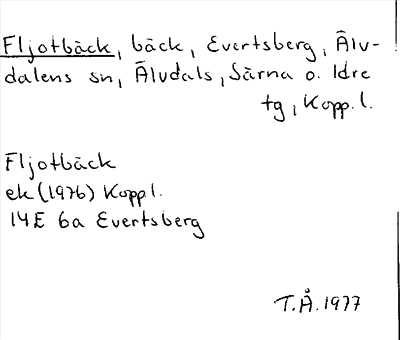 Fljotbäck, bäck, Evertsberg, Älv-
dalens sn, Älvdals, Särna o. Idre
tg, Kopp.l.
Fljotbäck
ek (1976) Kopp l.
14E 6a Evertsberg
T.Å. 1977